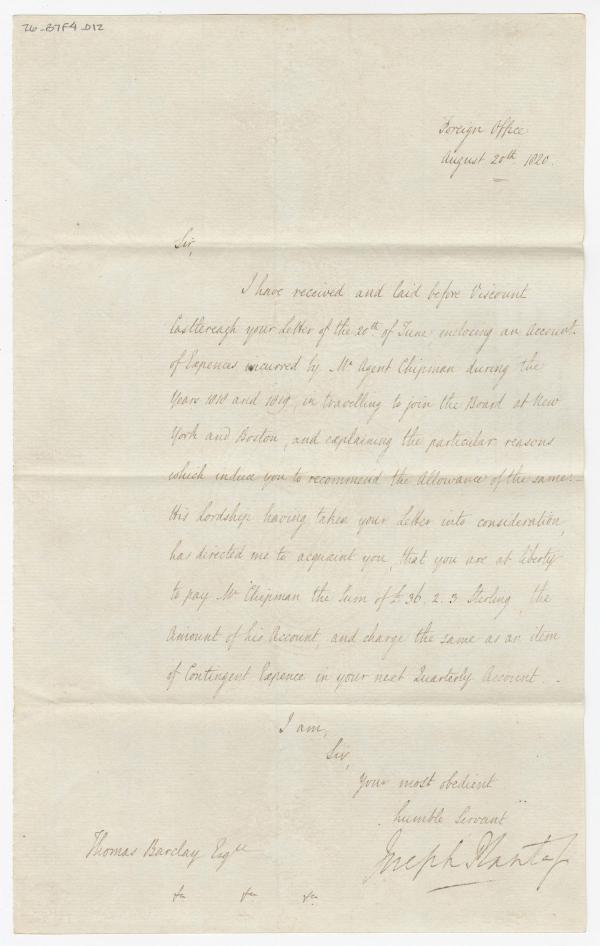 26-B7F4-D12
Foreign Office
August 20th 1820.
Sir,
I have received and laid before Viscount
Castlereagh your Letter of the 20th of June inclosing an Account
of Expences incurred by Mr Agent Chipman during the
Years 1818 and 1819, in travelling to join the Board at New
York and Boston, and explaining the particular reasons
which induce you to recommend the Allowance of the same.—
His Lordship having taken your Letter into consideration,
has directed me to acquaint you, that you are at liberty
to pay Mr Chipman the Sum of £36.2.3 Sterling, the
Amount of his Account, and charge the same as an item
of Contingent Expence in your next Quarterly Account.—
I am,
Sir,
Your most obedient
humble Servant
Joseph Planta
Thomas Barclay Esqre
&c &c &c